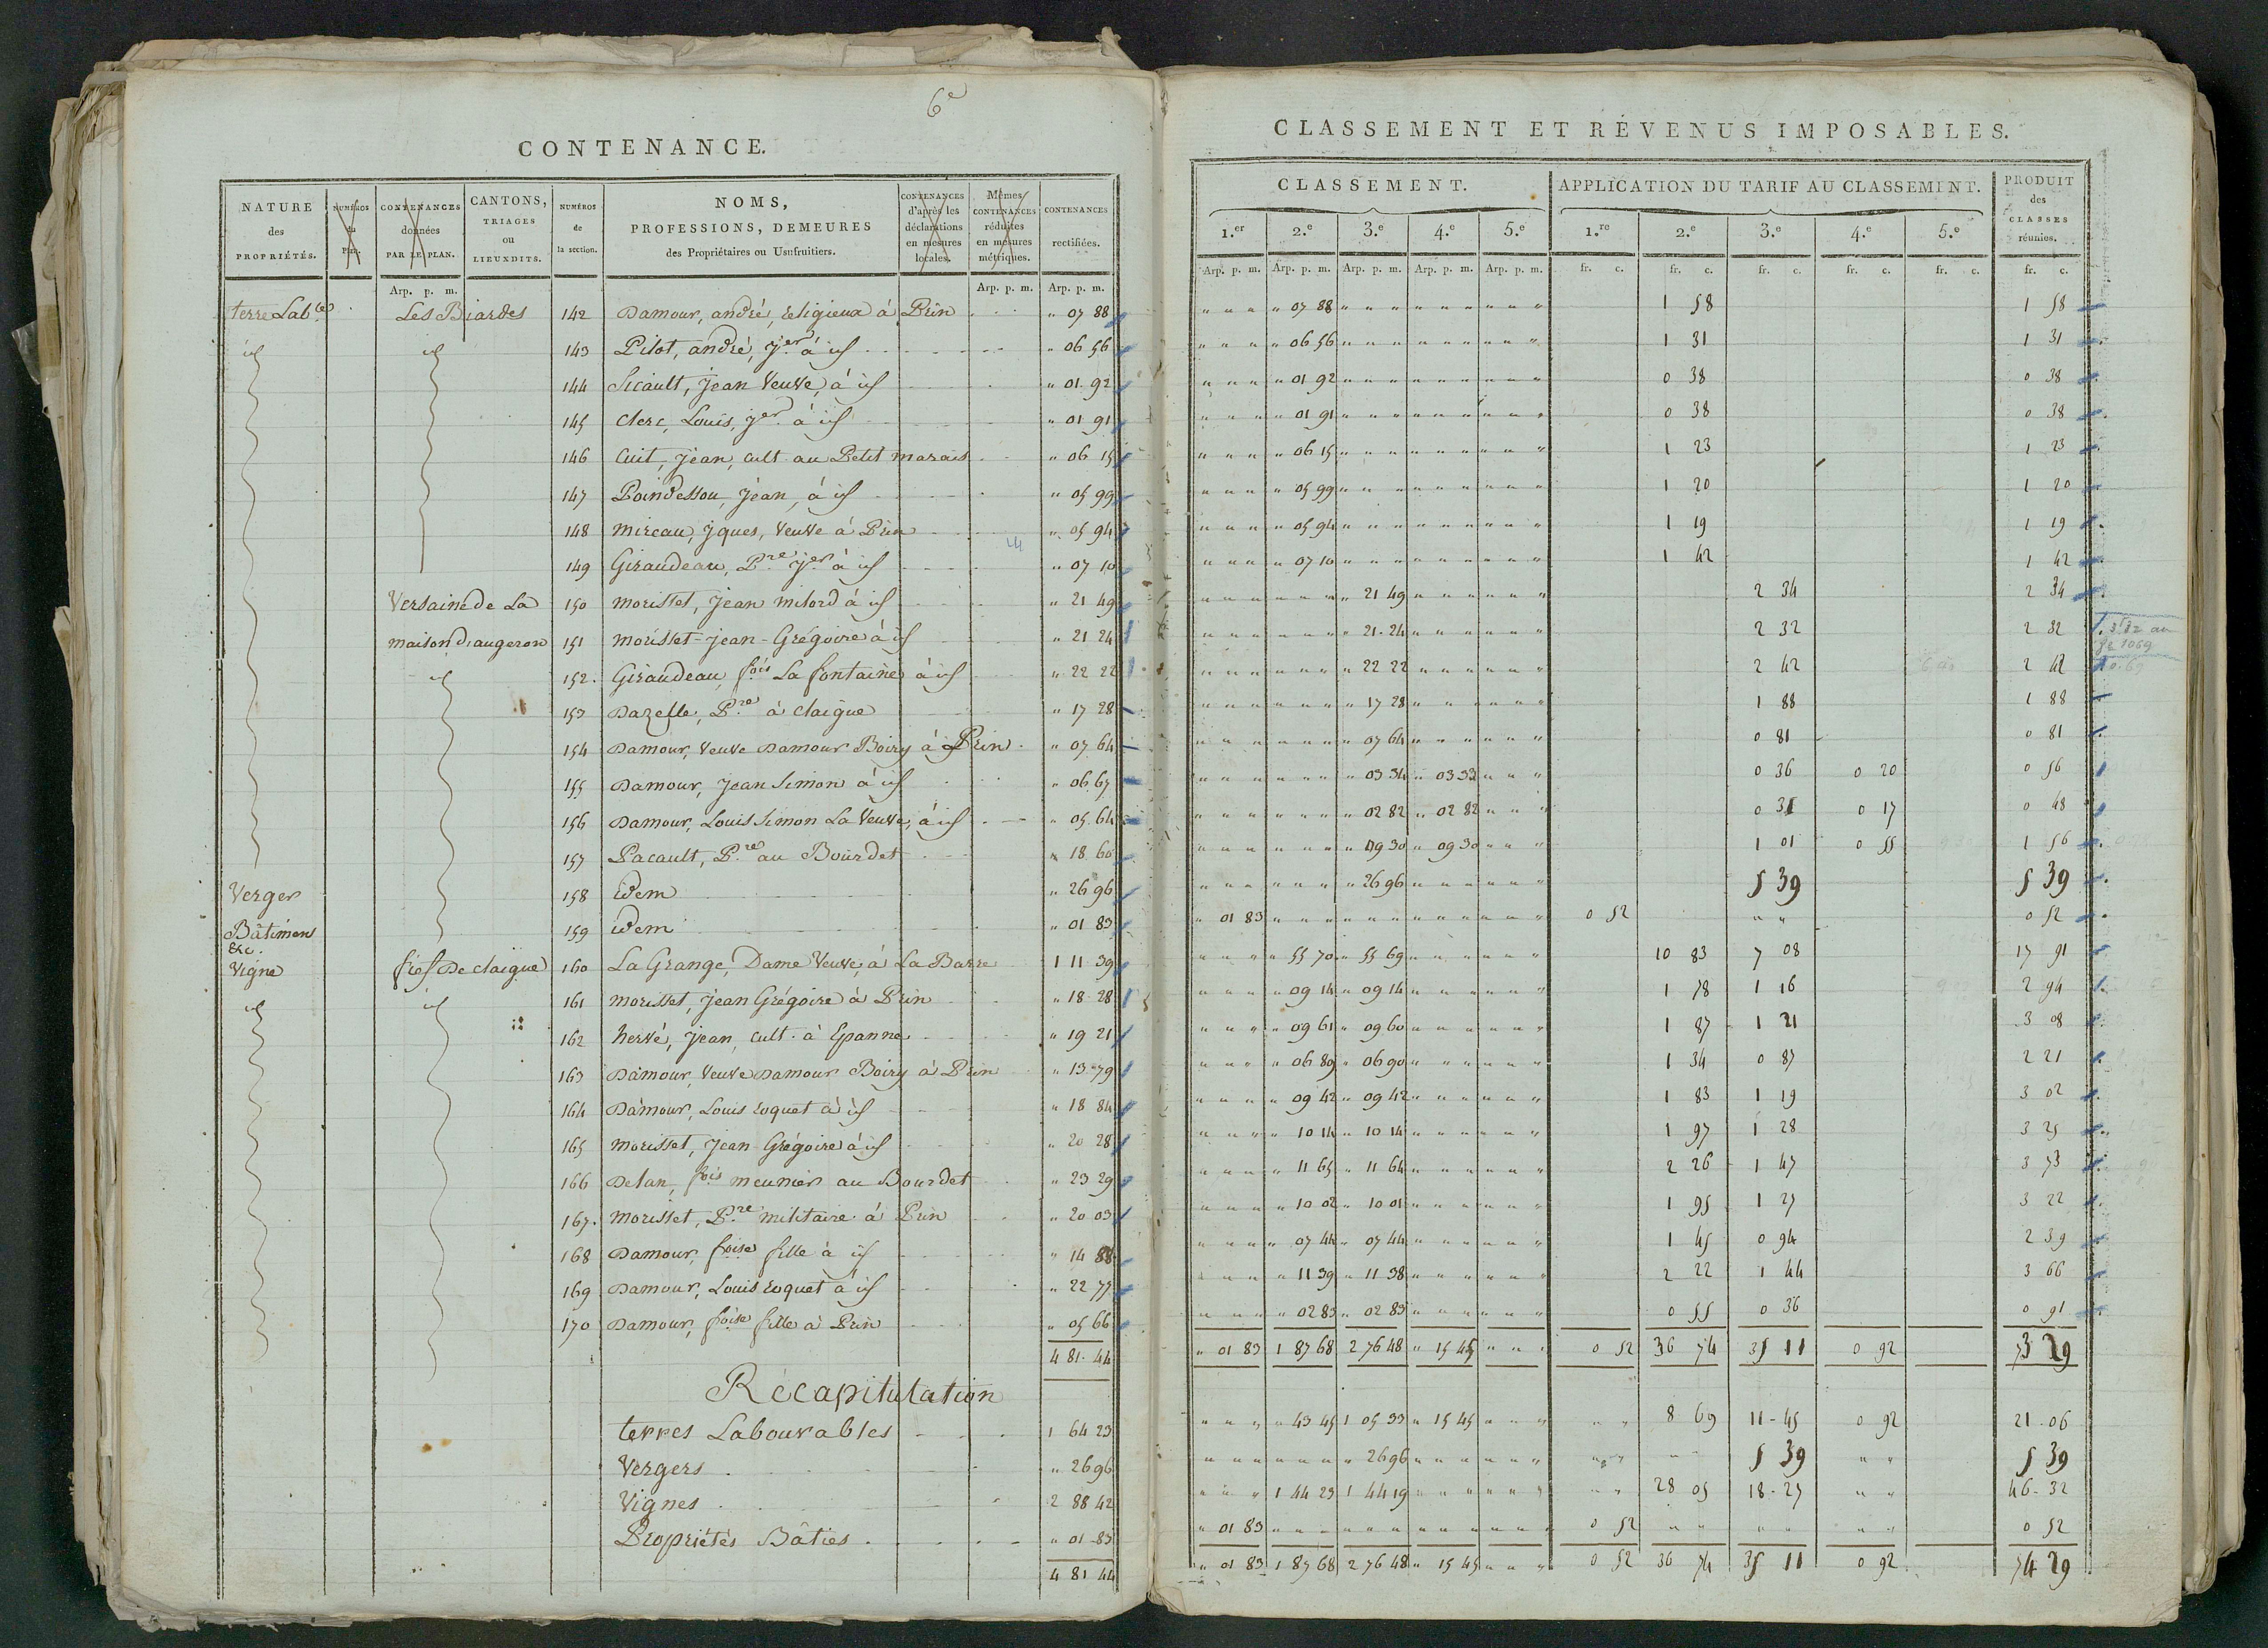 6e
CONTENANCE.
NATURE des PROPRIÉTÉS. NUMÉROS du Plan. CONTENANCES données PAR LE PLAN. CANTONS, TRIAGES ou LIEUXDITS. NUMÉROS de la section. NOMS, PROFESSIONS, DEMEURES des Propriétaires ou Usufruitiers. CONTENANCES d'après les déclarations en mesures locales. Mêmes CONTENANCES réduites en mesures métriques. CONTENANCES rectifiées.
Arp. p. m. Arp. p. m. Arp. p. m.
terre Lab.le Les Biardes 142 Damour, andré, religieux à Prin " 07 88
id id 143 Pilot, andré, jer à id " 06 56
144 Sicault, Jean Veuve, à id " 01 92
145 Clerc, Louis, jer à id " 01 91
146 Cuit, Jean, cult au Petit marais " 06 15
147 Poindessou, Jean, à id " 05 99
148 Mireau, Jques, Veuve à Prin " 05 94
149 Giraudeau, Pre jer à id " 07 10
Versaine de La 150 Morisset, Jean milord à id " 21 49
maison d'augeron 151 Morisset-Jean-Grégoire à id " 21 24
id 152. Giraudeau, fois La fontaine à id " 22 22
153 Dazelle, Pre à Claigue " 17 28
154 Damour, Veuve Damour Boiry à Prin " 07 64
155 Damour, Jean Simon à id " 06 67
156 Damour, Louis Simon La Veuve, à id " 05 64
157 Pacault, Pre au Bourdet " 18 60
Verger 158 Idem " 26 96
Bâtimens &c. 159 idem " 01 83
Vigne fief De Claigue 160 La Grange, Dame Veuve, à La Barre 1 11 39
id id 161 Morisset, Jean Grégoire à Prin " 18 28
162 hervé, Jean, cult. à Epannes " 19 21
163 Damour, Veuve Damour Boiry à Prin " 13 79
164 Damour, Louis roquet à id " 18 84
165 Morisset, Jean Grégoire à id " 20 28
166 Delan, fois meunier au Bourdet " 23 29
167. Morisset, Pre militaire à Prin " 20 03
168 Damour, foise fille à id " 14 88
169 Damour, Louis roquet à id " 22 77
170 Damour, foise fille à Prin " 05 66
4 81 44
Récapitulation
terres Labourables 1 64 23
Vergers " 26 96
Vignes 2 88 42
Propriétés Bâties " 01 83
4 81 44
CLASSEMENT ET REVENUS IMPOSABLES.
CLASSEMENT. APPLICATION DU TARIF AU CLASSEMENT. PRODUIT des CLASSES réunies.
1.er 2.e 3.e 4.e 5.e 1.re 2.e 3.e 4.e 5.e
Arp. p. m. Arp. p. m. Arp. p. m. Arp. p. m. Arp. p. m. fr. c. fr. c. fr. c. fr. c. fr. c. fr. c.
" 07 88 1 58 1 58
" 06 56 1 31 1 31
" 01 92 0 38 0 38
" 01 91 0 38 0 38
" 06 15 1 23 1 23
" 05 99 1 20 1 20
" 05 94 1 19 1 19
" 07 10 1 42 1 42
" 21 49 2 34 2 34
" 21 24 2 32 2 32
" 22 22 2 42 2 42
" 17 28 1 88 1 88
" 07 64 0 81 0 81
" 03 34 " 03 33 0 36 0 20 0 56
" 02 82 " 02 82 0 31 0 17 0 48
" 09 30 " 09 30 1 01 0 55 1 56
" 26 96 5 39 5 39
" 01 83 0 52 " " 0 52
" 55 70 " 55 69 10 83 7 08 17 91
" 09 14 " 09 14 1 78 1 16 2 94
" 09 61 " 09 60 1 87 1 21 3 08
" 06 89 " 06 90 1 34 0 87 2 21
" 09 42 " 09 42 1 83 1 19 3 02
" 10 14 " 10 14 1 97 1 28 3 25
" 11 65 " 11 64 2 26 1 47 3 73
" 10 02 " 10 01 1 95 1 27 3 22
" 07 44 " 07 44 1 45 0 94 2 39
" 11 39 " 11 38 2 22 1 44 3 66
" 02 83 " 02 83 0 55 0 36 0 91
" 01 83 1 87 68 2 76 48 " 15 45 " " " 0 52 36 74 35 11 0 92 73 29
" 43 45 1 05 33 " 15 45 " " " " " 8 69 11-45 0 92 21-06
" 26 96 " " " " 5 39 " " 5 39
1 44 23 1 44 19 " " 28 05 18-27 " " 46-32
" 01 83 0 52 " " " " " " 0 52
" 01 83 1 87 68 2 76 48 " 15 45 " " " 0 52 36 74 35 11 0 92 74 29